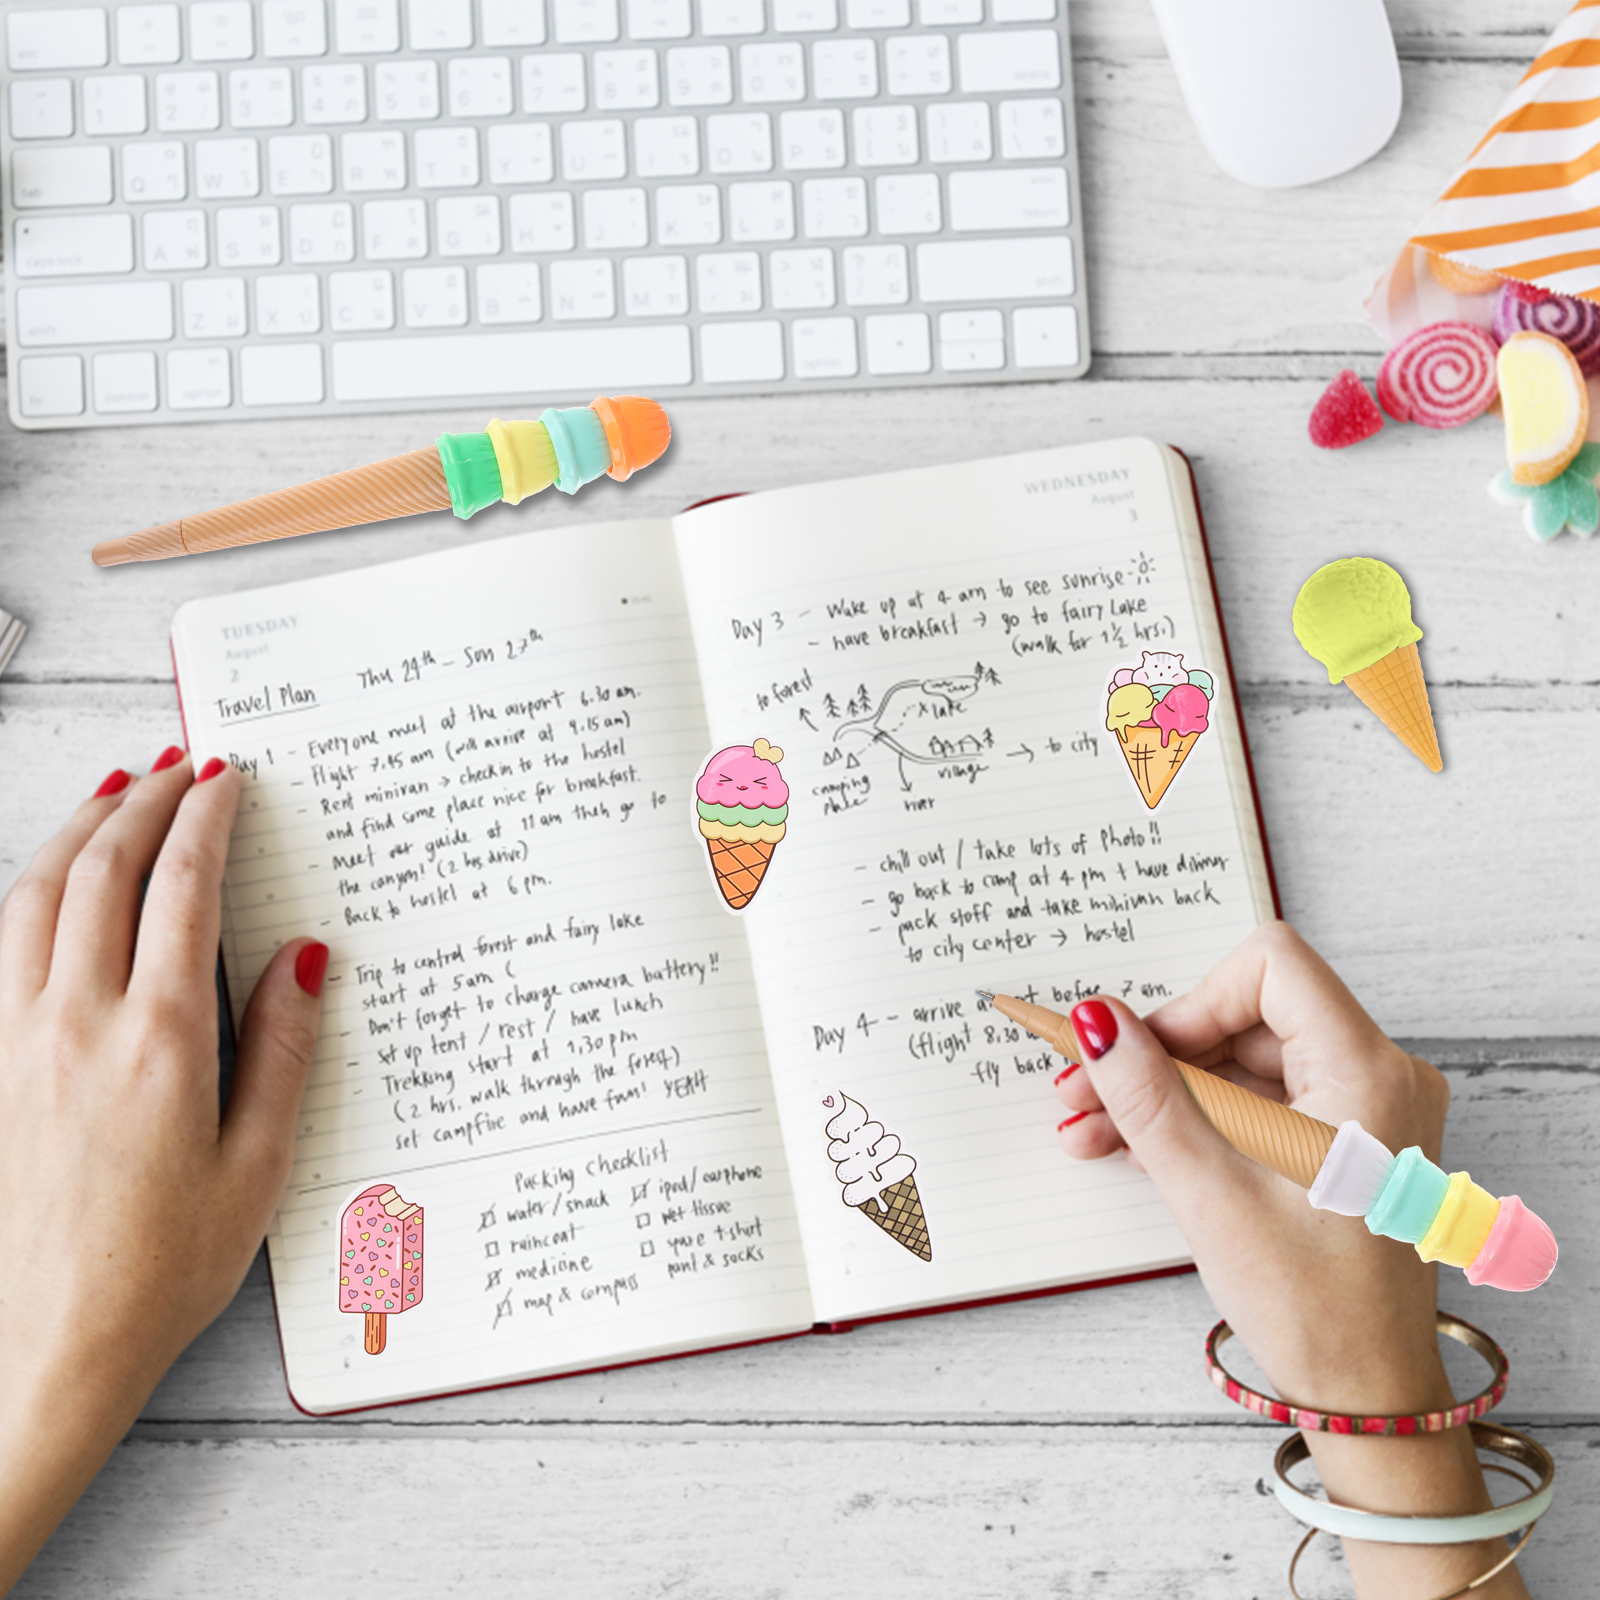 TUESDAY
August
2
Thu 24th - Sun 27th
Travel Plan
Day 1 - Everyone meet at the airport 6.30 am.
- Flight 7.45 am (will arrive at 9.15 am)
- Rent minivan → checkin to the hostel
and find some place nice for breakfast.
- Meet our guide at 11 am then go to
the canyon! (2 hrs drive)
- Back to hostel at 6 pm.
- Trip to central forest and fairy lake
start at 5am (
- Don't forget to charge camera battery!!
- set up tent / rest / have lunch
- Trekking start at 1,30 pm
(2 hrs. walk through the forest)
set campfire and have fun! YEAH
Packing Checklist
water / snack
raincoat
medicine
map & compass
ipod / earphone
wet tissue
spare t-shirt
pant & socks
WEDNESDAY
August
3
Day 3 - Wake up at 4 am to see sunrise
- have breakfast → go to fairy Lake
(walk for 1 1/2 hrs.)
to forest
x lake
→ to city
village
camping
place
river
- chill out / take lots of photo!!
- go back to camp at 4 pm + have dinner
- pack stuff and take minivan back
to city center → hostel
Day 4 - arrive a t before 7 am.
(flight 8.30
fly back
esc
delete
tab
Q W E R T Y U I O P
caps lock
return
A S D F G H J K L
shift
Z X C V B N M
shift
fn
control
option
option